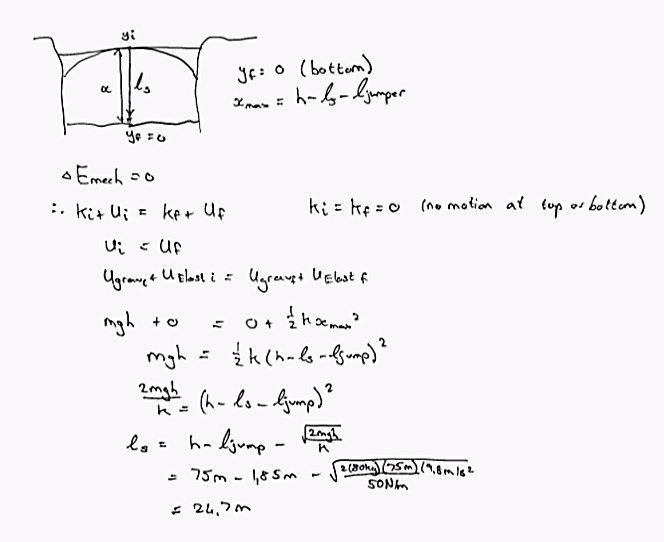 yi
α
ls
yf = 0
yf = 0 (bottom)
xmax = h - ls - ljumper
Δ Emech = 0
∴ ki + Ui = kf + Uf
ki = kf = 0 (no motion at top or bottom)
Ui = Uf
Ugravi + UElast i = Ugravf + UElast f
mgh + 0 = 0 + ½ k xmax²
mgh = ½ k (h - ls - ljump)²
2mgh/k = (h - ls - ljump)²
ls = h - ljump - √(2mgh/k)
= 75m - 1,85m - √(2(80kg)(75m)(9,8m/s²/50N/m
= 24,7m